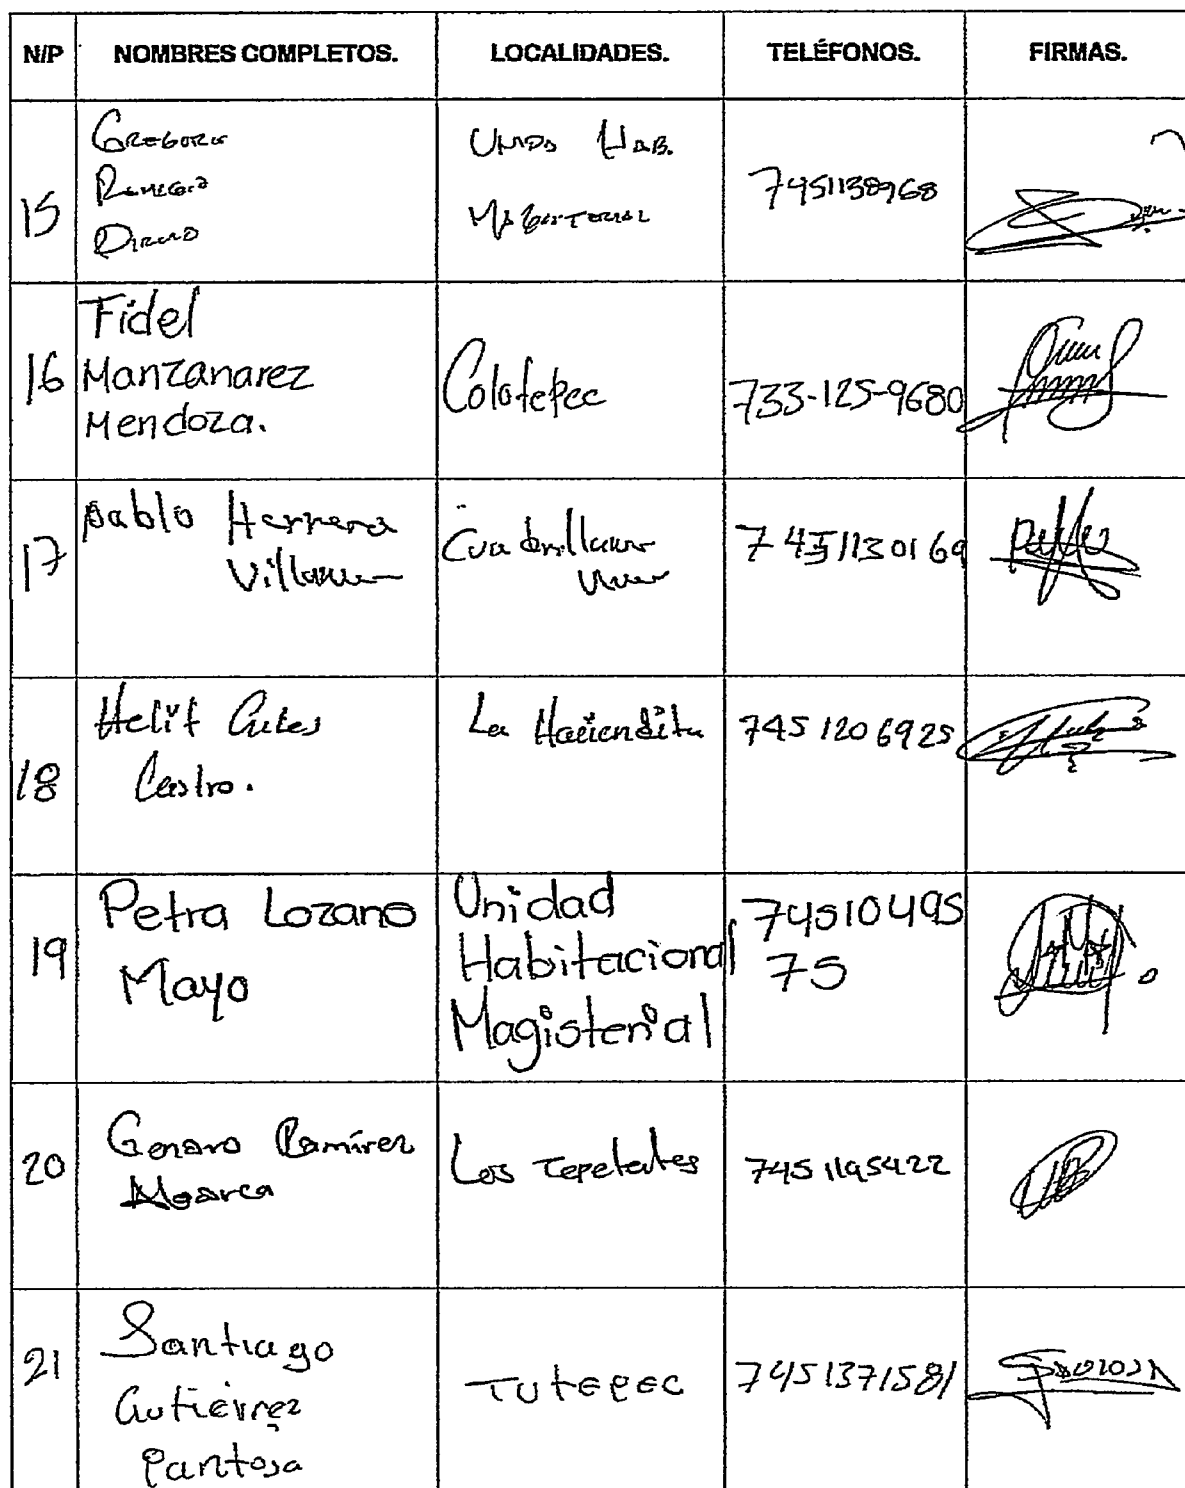 N/P NOMBRES COMPLETOS. LOCALIDADES. TELÉFONOS. FIRMAS.
15
Gregorio
Remigio
Unidad Hab.
Magisterial
7451138968
16
Fidel
Manzanarez
Mendoza.
Colotepec
733-125-9680
17
Pablo Herrera
Cuadrilla
7451130169
18
Helit
Castro.
La Haciendita
7451206925
19
Petra Lozano
Mayo
Unidad
Habitacional
Magisterial
74510495
75
20
Genaro Ramírez
Los Tepetates
7451195422
21
Santiago
Gutiérrez
Pantoja
Tutepec
7451371581